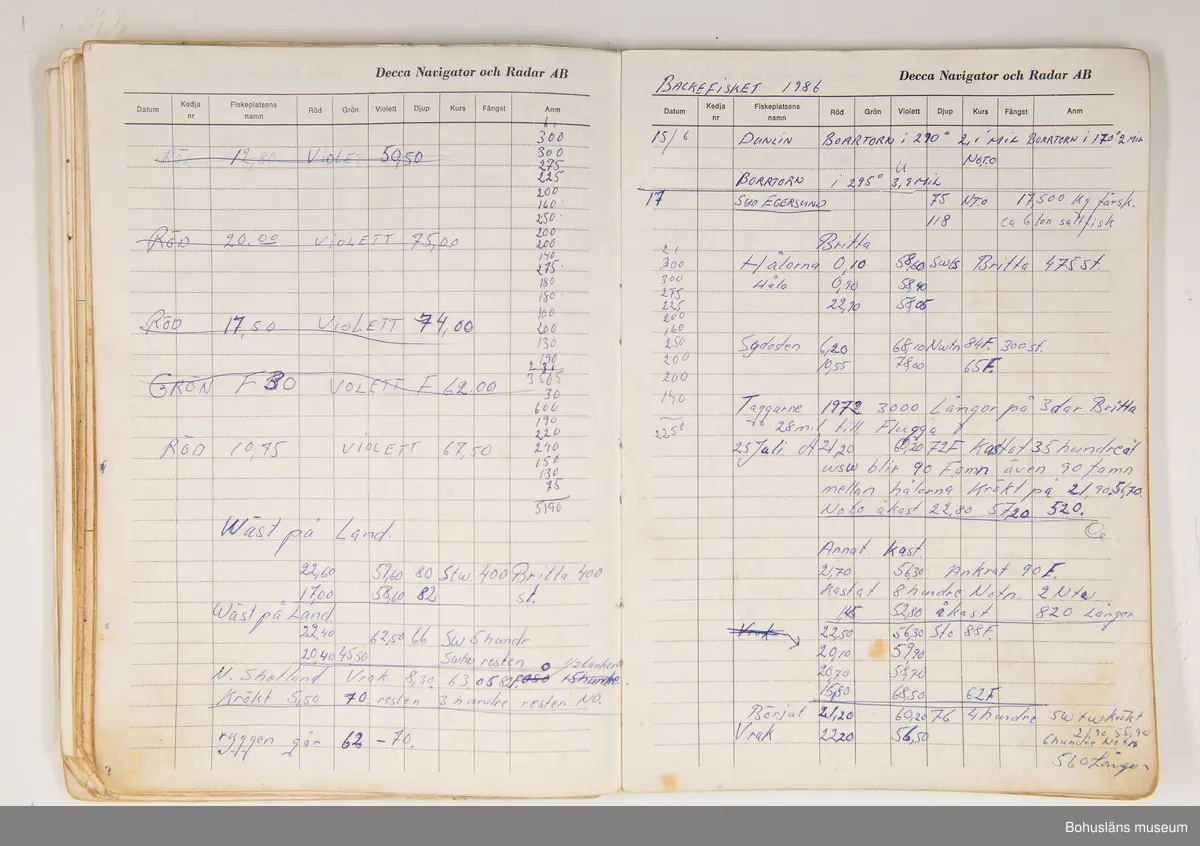 Decca Navigator och Radar AB
Datum Kedja nr Fiskeplatsens namn Röd Grön Violett Djup Kurs Fångst Anm
61
300
300
275
225
200
160
250
200
200
140
275
180
180
100
200
130
190
3565
30
600
190
220
240
150
130
75
5190
RÖD 12,80 VIOLET 50,50
RÖD 20.00 VIOLETT 75,00
RÖD 17,50 VIOLETT 74,00
GRÖN F 30 VIOLETT F 62.00
RÖD 10,45 VIOLETT 67,50
Wäst på Land.
22,60 57,60 80 Stw. 400 Britta 400
17,00 58,60 82 st.
Wäst på Land.
22,40 62,50 66 Sw 5 hundr
20,40 45,50 Swtw resten
N. Shetland Vrak 8,30 63,05
Krökt 5,50 70 resten 3 hundre resten NO.
ryggen går 62 – 70.
Decca Navigator och Radar AB
BACKEFISKET 1986
Datum Kedja nr Fiskeplatsens namn Röd Grön Violett Djup Kurs Fångst Anm
15/6 DUNLIN BORRTORN i 290° 2,1 MIL BORRTORN i 170° 2 MIL
NOTO
BORRTORN i 295° 3,9 MIL
17 SYD EGERSUND 75 NTO 17,500 Kg färsk.
118 ca 6 ton saltfisk
Britta
Hålorna 0,10 58,60 Swts Britta 475 st.
Hålo 0,90 58,40
22,70 57,05
21
300
300
275
225
200
160
250
200
200
140
2250
Sydosten 6,20 68,10 Nwtn 84F. 300 st.
10,55 78,00 65F.
Taggarne 1972 3000 Långor på 3 dar Britta
28 mil till Flugga
25 Juli 21,20 60,20 72F Kastat 35 hundre åt
wsw blir 90 Famn även 90 famn
mellan hålorna Krökt på 21,90, 56,70.
Noto åkast 22,80 57,20 520.
Annat Kast
21,70 56,30 Ankrat 90 F.
Kastat 8 hundre Notn. 2 Ntw
1,45 52,80 åkast 820 Långor
Vrak 22,50 56,30 Sto 88F.
20,10 59,90
20,70 59,70
15,80 68,50 62F
Börjat 21,20 60,20 76 4 hundre Swtw krökt
21,90, 55,90
Vrak 22,20 56,50 6 hundre Notn
560 Långor
Bohusläns museum